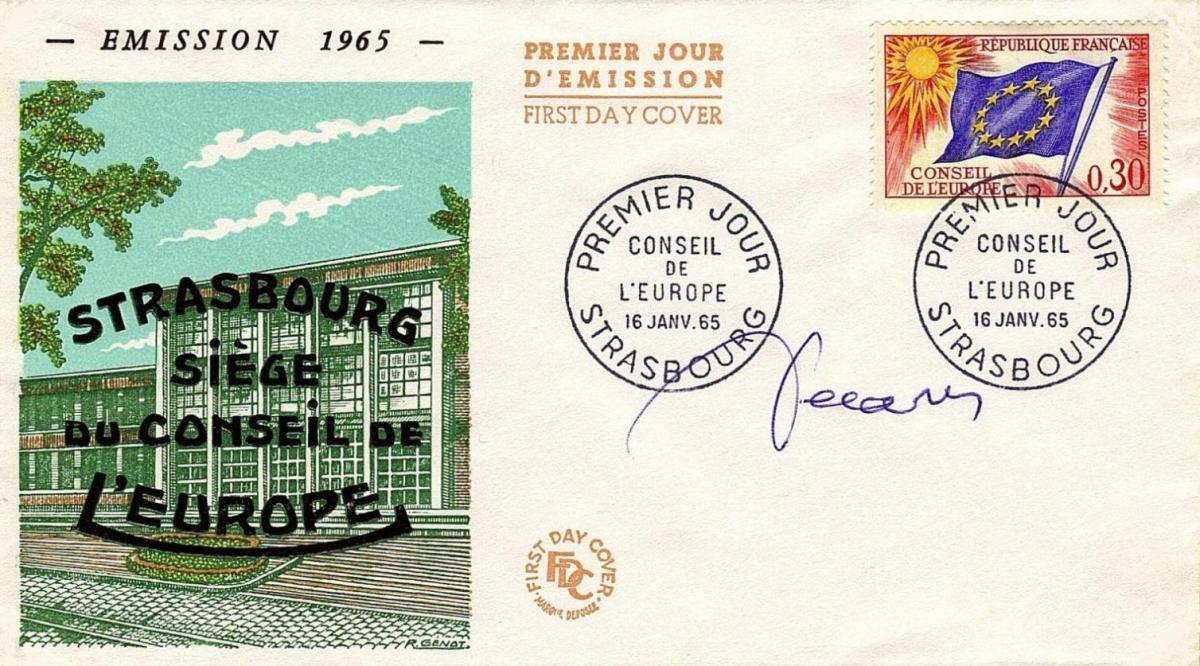 — EMISSION 1965 —
PREMIER JOUR
D'EMISSION
FIRST DAY COVER
RÉPUBLIQUE FRANÇAISE
POSTES
CONSEIL
DE L'EUROPE
0,30
STRASBOURG
SiÈGE
DU CONSEiL DE
L'EUROPE
R. GÉNOT.
PREMIER JOUR
CONSEIL
DE
L'EUROPE
16 JANV. 65
STRASBOURG
PREMIER JOUR
CONSEIL
DE
L'EUROPE
16 JANV. 65
STRASBOURG
FIRST DAY COVER
FDC
MARQUE DEPOSÉE